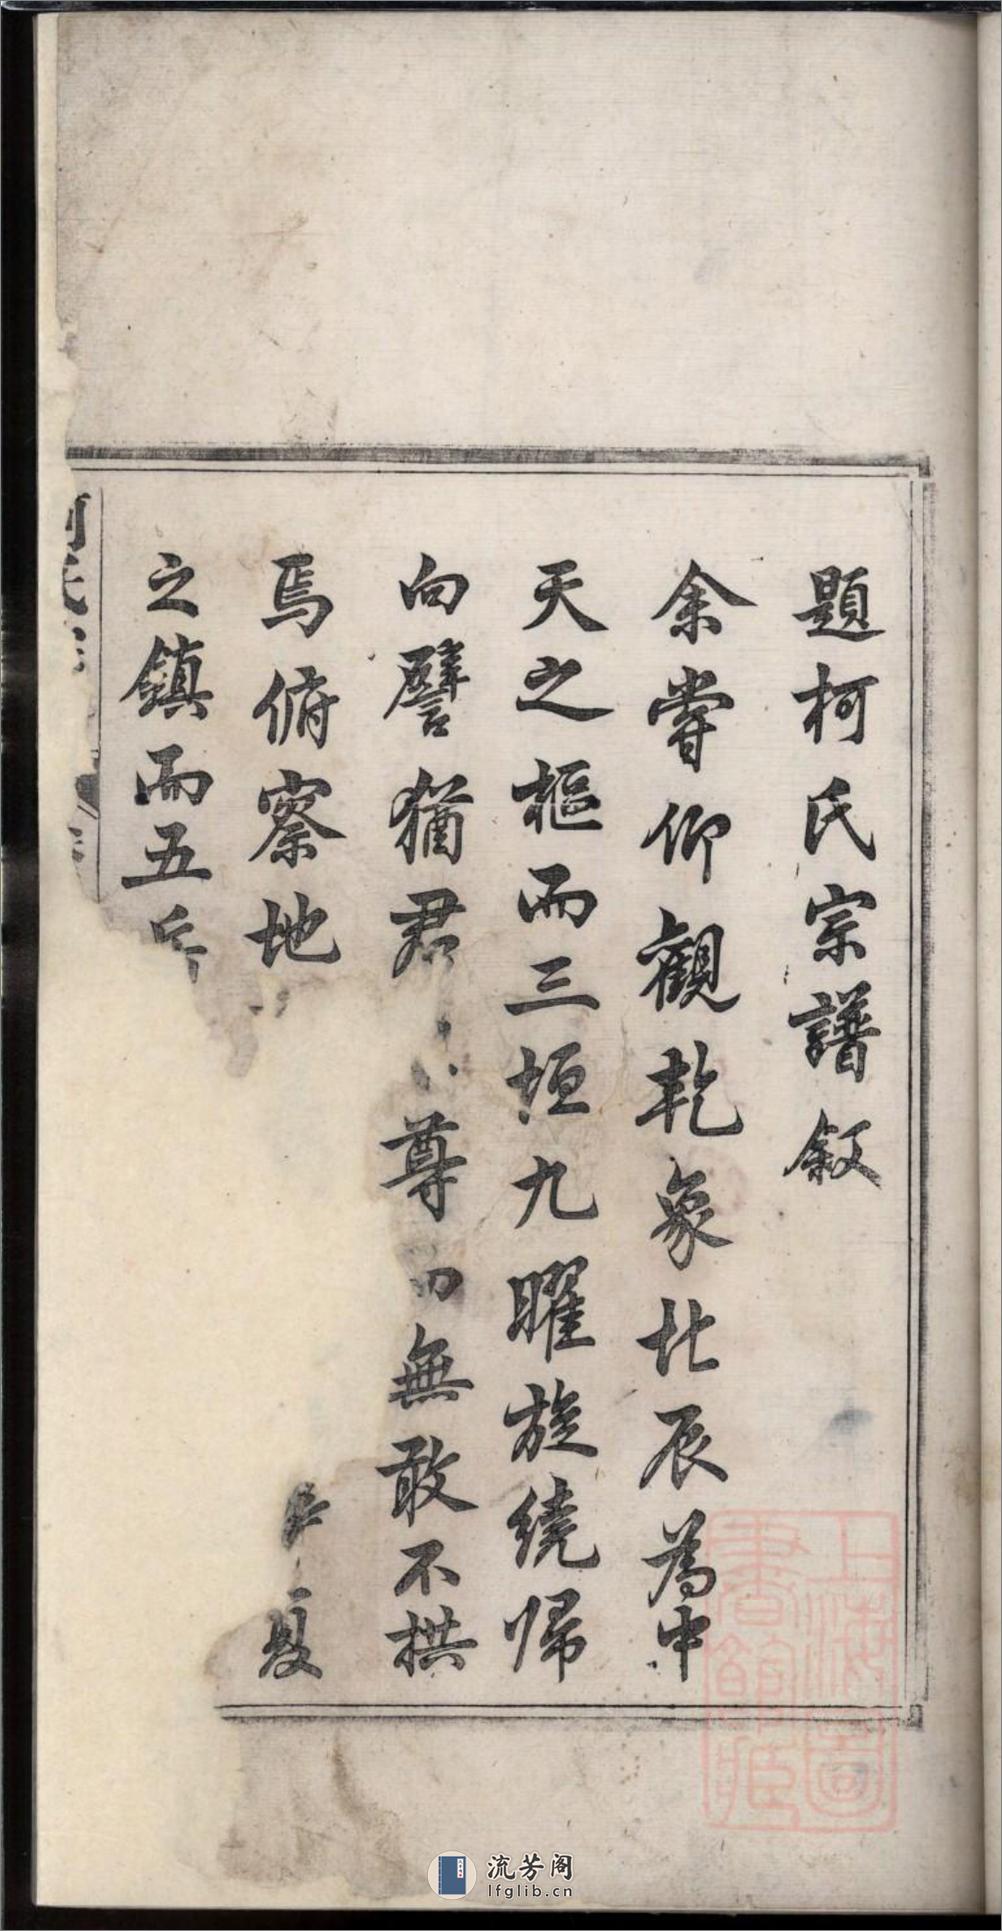 題柯氏宗譜敘
余嘗仰觀乾象北辰為中
天之樞而三垣九曜旋繞歸
向譬猶君尊無敢不拱
焉俯察地夏
之鎮而五
氏
上海圖
書館藏
流芳阁
lfglib.cn